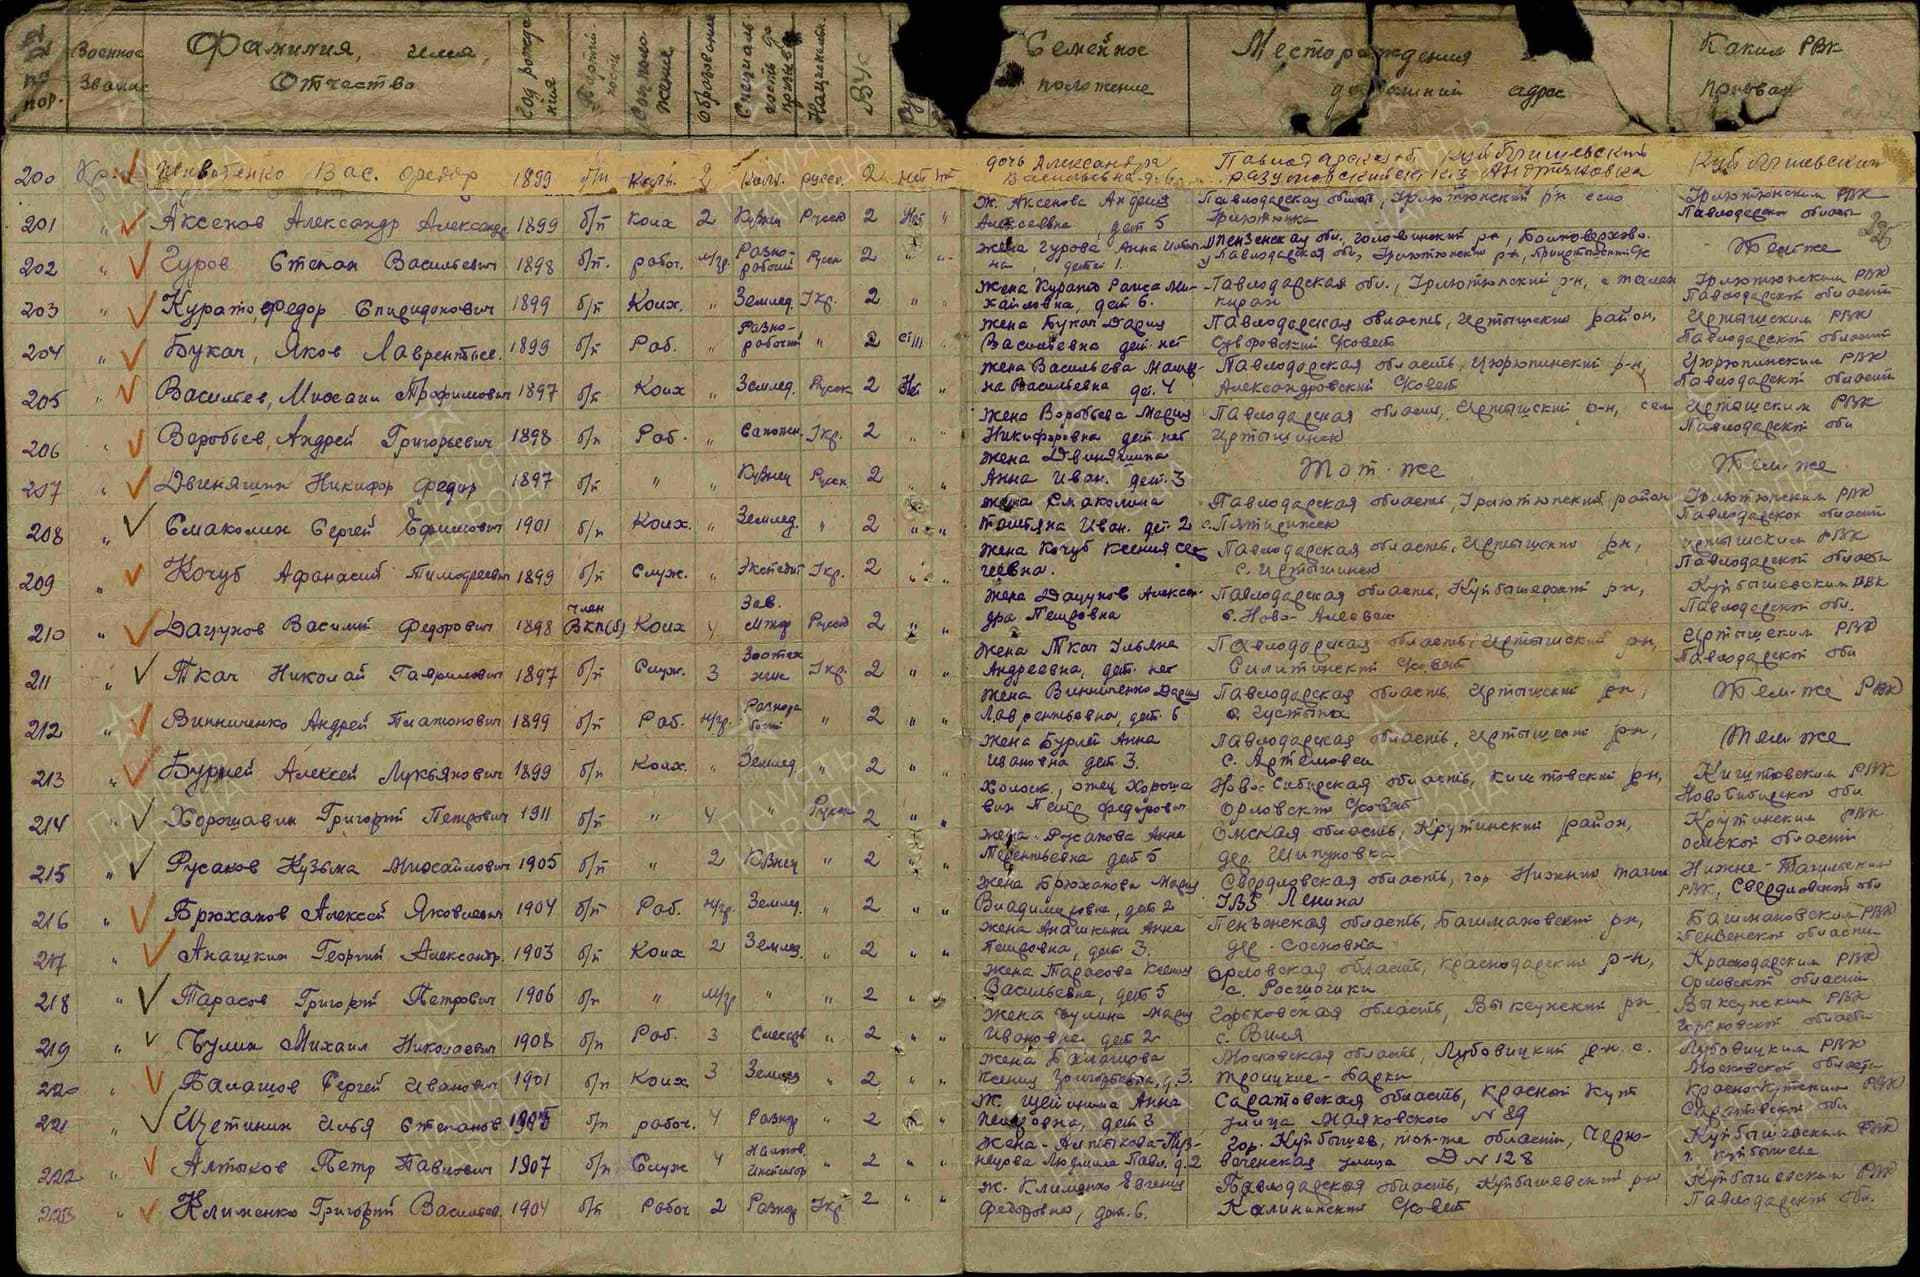 №№ по пор. Военное Звание Фамилия, имя, Отчество Год рождения Партийность Соц. положение Образование Специальность до призыва Национальн. ВУС Семейное положение Место рождения домашний адрес Каким РВК призван
200 Вас. Федор 1899 б/п Колх. 2 Колх. русск. 2 нет дочь Александра Васильевна д. 6. Павлодарская об Куйбышевский Разумовский с/с Куйбышевский
201 " Аксенов Александр Александр. 1899 б/п Колх 2 Кузнец Русск 2 Нет " ж. Аксенова Алексеевна, дет 5 Павлодарская област, Урлютюпский р-н село Урлютюпка Урлютюпским РВК Павлодарской области
202 " Гуров Степан Васильевич 1898 б/п. рабоч. м/гр. Разно-рабочий Русск 2 " " жена Гурова Анна детей 1. Пензенская обл., р-н, Павлодарская обл, Урлютюпский р-н, Тем же
203 " Курато, Федор Спиридонович 1899 б/п Колх. " Землед. Укр. 2 " " Жена Курато Раиса Михайловна, дет 6. Павлодарская обл., Урлютюпский р-н, Урлютюпским РВК Павлодарской области
204 " Букач, Яков Лаврентьев. 1899 б/п Раб. " Разно-рабочий " 2 " жена Букач Дария Васильевна дет. нет Павлодарская область, Иртышский район, Суворовский с/совет Иртышским РВК Павлодарской области
205 " Васильев, Михаил Трофимович 1897 б/п Колх " Землед. Русск 2 Нет " жена Васильева Матрена Васильевна дет. 4 Павлодарская область, Цюрюпинский р-н, Александровский с/совет Цюрюпинским РВК Павлодарской области
206 " Воробьев, Андрей Григорьевич 1898 б/п Раб. " Сапожн. Укр. 2 " " Жена Воробьева Мария Никифоровна дет. нет Павлодарская область, Иртышский р-н, село Иртышинск Иртышским РВК Павлодарской обл
207 " Двиняшин Никифор Федор 1897 б/п " " Кузнец Русск 2 " " Жена Двиняшина Анна Иван. дет. 3 Тот-же Тем-же
208 " Смаколин Сергей Ефимович 1901 б/п Колх. " Землед. " 2 " " жена Смаколина Татьяна Иван. дет. 2 Павлодарская область, Урлютюпский район с. Пятирижск Урлютюпским РВК Павлодарской области
209 " Кочуб Афанасий Тимофеевич 1899 б/п Служ. " Экспедит Укр. 2 " " Жена Кочуб Ксения Павлодарская область, Иртышский р-н, с. Иртышинск Иртышским РВК Павлодарской области
210 " Дацунов Василий Федорович 1898 член ВКП(б) Колх 4 Зав. Русск 2 " " Жена Дацунов Александра Петровна Павлодарская область, Куйбышевский р-н, Куйбышевским РВК Павлодарской обл.
211 " Ткач Николай Гаврилович 1897 б/п Служ. 3 Зоотехник Укр. 2 " " Жена Ткач Ульяна Андреевна, дет. нет Павлодарская область, Иртышский р-н, с/совет Иртышским РВК Павлодарской обл
212 " Винниченко Андрей Платонович 1899 б/п Раб. м/гр. " 2 " " Жена Винниченко Дария Лаврентьевна, дет. 6 Павлодарская область, Иртышский р-н, Тем-же РВК
213 " Бурлей Алексей Лукьянович 1899 б/п Колх. " Землед. " 2 " " Жена Бурлей Анна Ивановна дет. 3. Павлодарская область, Иртышский р-н, с. Артемовка Тем-же
214 " Хорошавин Григорий Петрович 1911 б/п " 4 " Русск 2 " " Холост, отец Хорошавин Петр Федорович Ново-Сибирская область, Киштовский р-н, Орловский с/совет Киштовским РВК Новосибирской обл
215 " Русаков Кузьма Михайлович 1905 б/п " 2 Кузнец " 2 " " Жена Русакова Анна Терентьевна дет 5 Омская область, Крутинский район, дер. Шипуновка Крутинским РВК Омской области
216 " Брюханов Алексей Яковлевич 1904 б/п Раб. м/гр. Землед. " 2 " " Жена Брюханова Мария Владимировна, дет 2 Свердловская область, гор Нижний Тагил УВЗ Ленина Нижне-Тагильским РВК, Свердловской обл
217 " Анашкин Георгий Александр. 1903 б/п Колх 2 Землед. " 2 " " Жена Анашкина Анна Петровна, дет 3. Пензенская область, Башмаковский р-н, дер. Сосновка Башмаковским РВК Пензенской области
218 " Тарасов Григорий Петрович 1906 б/п " м/гр " " 2 " " Жена Тарасова Ксения Васильевна, дет 5 Орловская область, Краснодарский р-н, с. Росошки Краснодарским РВК Орловской области
219 " Булин Михаил Николаевич 1908 б/п Раб. 3 Слесарь " 2 " " Жена Булина Мария Ивановна дет 2 Горьковская область, Выксунский р-н. с. Виля Выксунским РВК Горьковской области
220 " Балашов Сергей Иванович 1901 б/п Колх 3 Землед " 2 " " Жена Балашова Ксения Григорьевна, д. 3. Московская область, Луховицкий р-н с. Троицкие-Борки Луховицким РВК Московской области
221 " Щетинин Илья Степанов. 1905 б/п рабоч. 4 Разнор " 2 " " Ж. Щетинина Анна Петровна, дет 3 Саратовская область, Красный Кут улица Маяковского № 89 Красно-Кутским РВК Саратовской обл
222 " Алтыков Петр Павлович 1907 б/п Служ 4 " 2 " " Жена-Алтыкова Людмила Павл. д. 2 гор. Куйбышев, той-же области, улица Д № 128 Куйбышевским РВК г. Куйбышева
223 " Клименко Григорий Васильев. 1904 б/п Рабоч 2 Разнор Укр. 2 " " Ж. Клименко Евгения Федоровна, дет. 6. Павлодарская область, Куйбышевский р-н Калининский с/совет Куйбышевским РВК Павлодарской обл.
ПАМЯТЬ НАРОДА